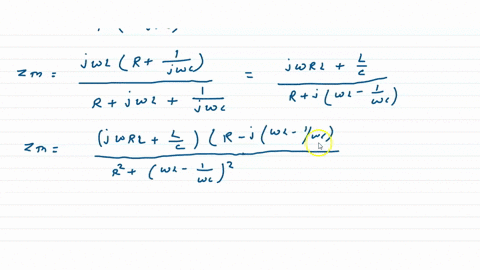 Zin = jωL (R + 1/jωC) / R + jωL + 1/jωC = jωRL + L/C / R + j(ωL - 1/ωC)
Zin = (jωRL + L/C) (R - j(ωL - 1/ωC) / R² + (ωL - 1/ωC)²